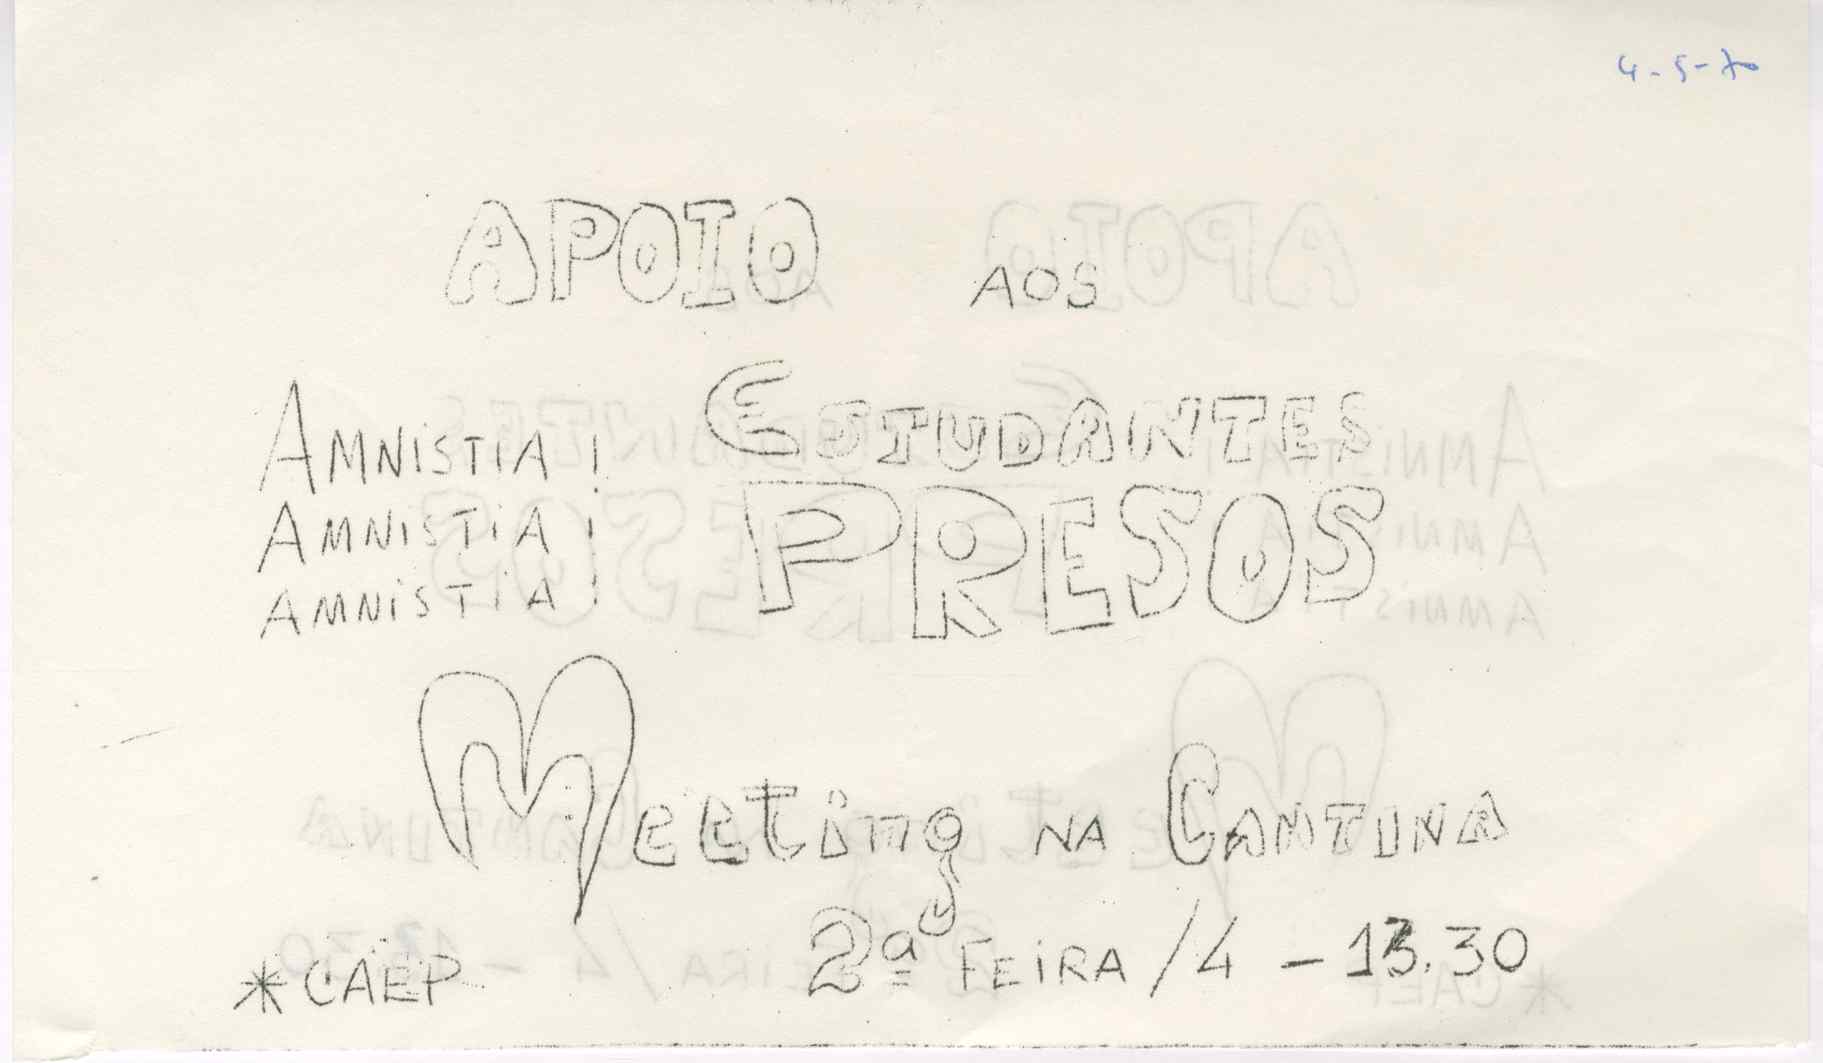 4-5-70
APOIO AOS
ESTUDANTES
PRESOS
AMNISTIA!
AMNISTIA!
AMNISTIA!
Meeting NA CANTINA
2ª FEIRA/4 - 13.30
*CAEP